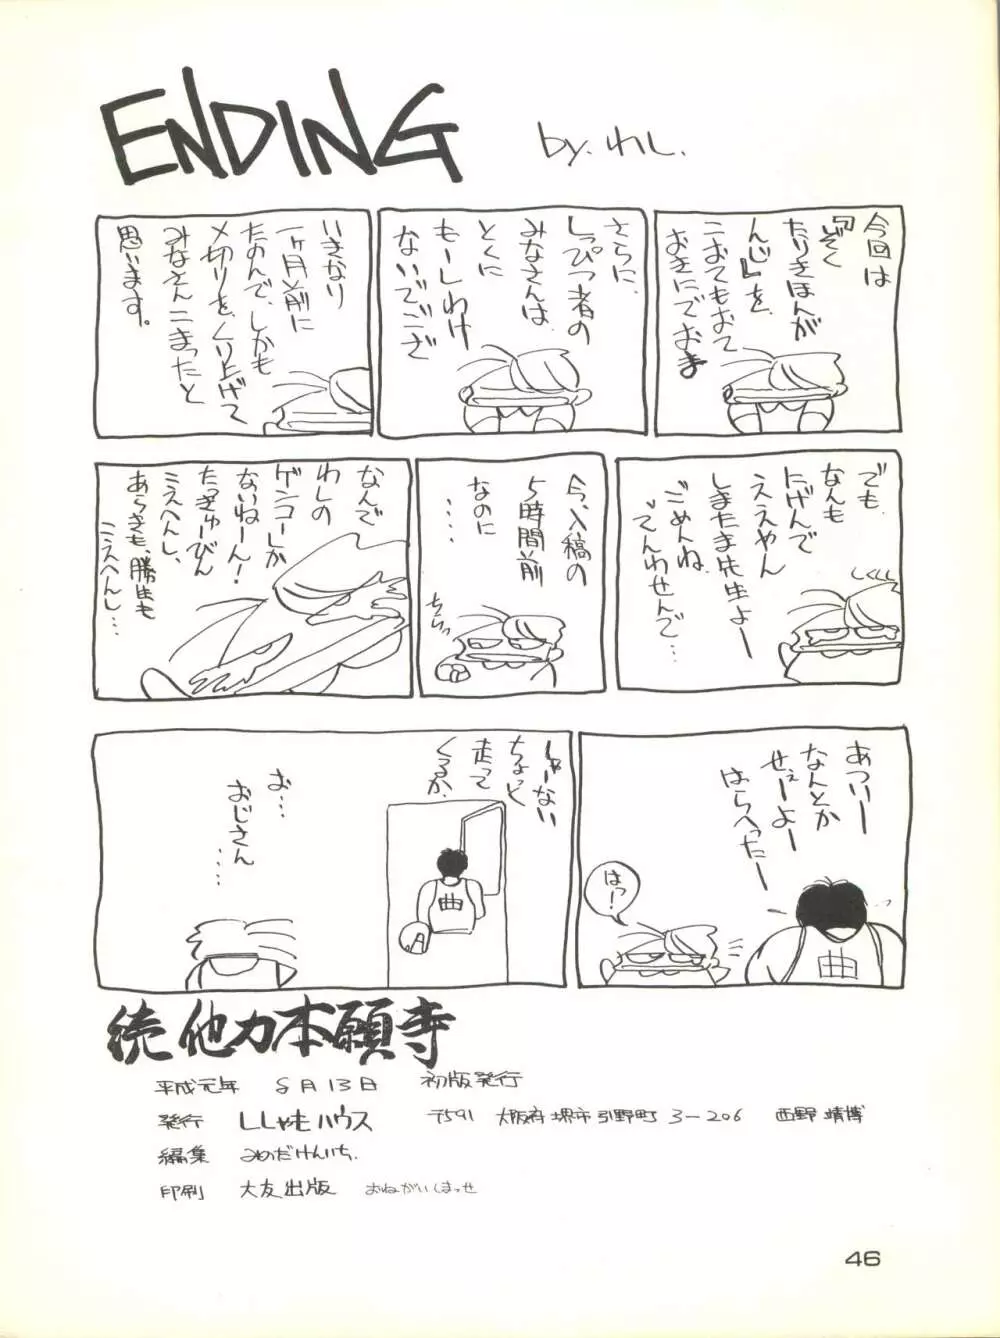 ENDING
by.わし.
今回は
『ぞく
たりきほんが
んじ』を
こおてもおて
おきにでおま
さらに、
しっぴつ者の
みなさんは
とくに
もーしわけ
ないでござ
いきなり
一ヶ月前に
たのんで、しかも
〆切りをくり上げて
みなさんこまったと
思います。
でも、
なんも
にげんで
ええやん
しまたま先生よー
ごめんね、
てんわせんで…
しくしく
今、入稿の
5時間前
なのに
‥‥
ちらっ
なんで
わしの
ゲンコーしか
ないねーん!
たっきゅーびん
こえへんし、
あらきも、勝生も
こえへんし…
あついー
なんとか
せぇーよー
はらへったー
はっ!
曲
しゃーない
ちょっと
走って
くるか、
曲
お…
おじさん
‥‥
続 他力本願寺
平成元年 8月13日 初版発行
発行 ししゃもハウス 〒591 大阪府堺市引野町3-206 西野 靖博
編集 みのだけんいち.
印刷 大友出版 おねがいしまっせ
46